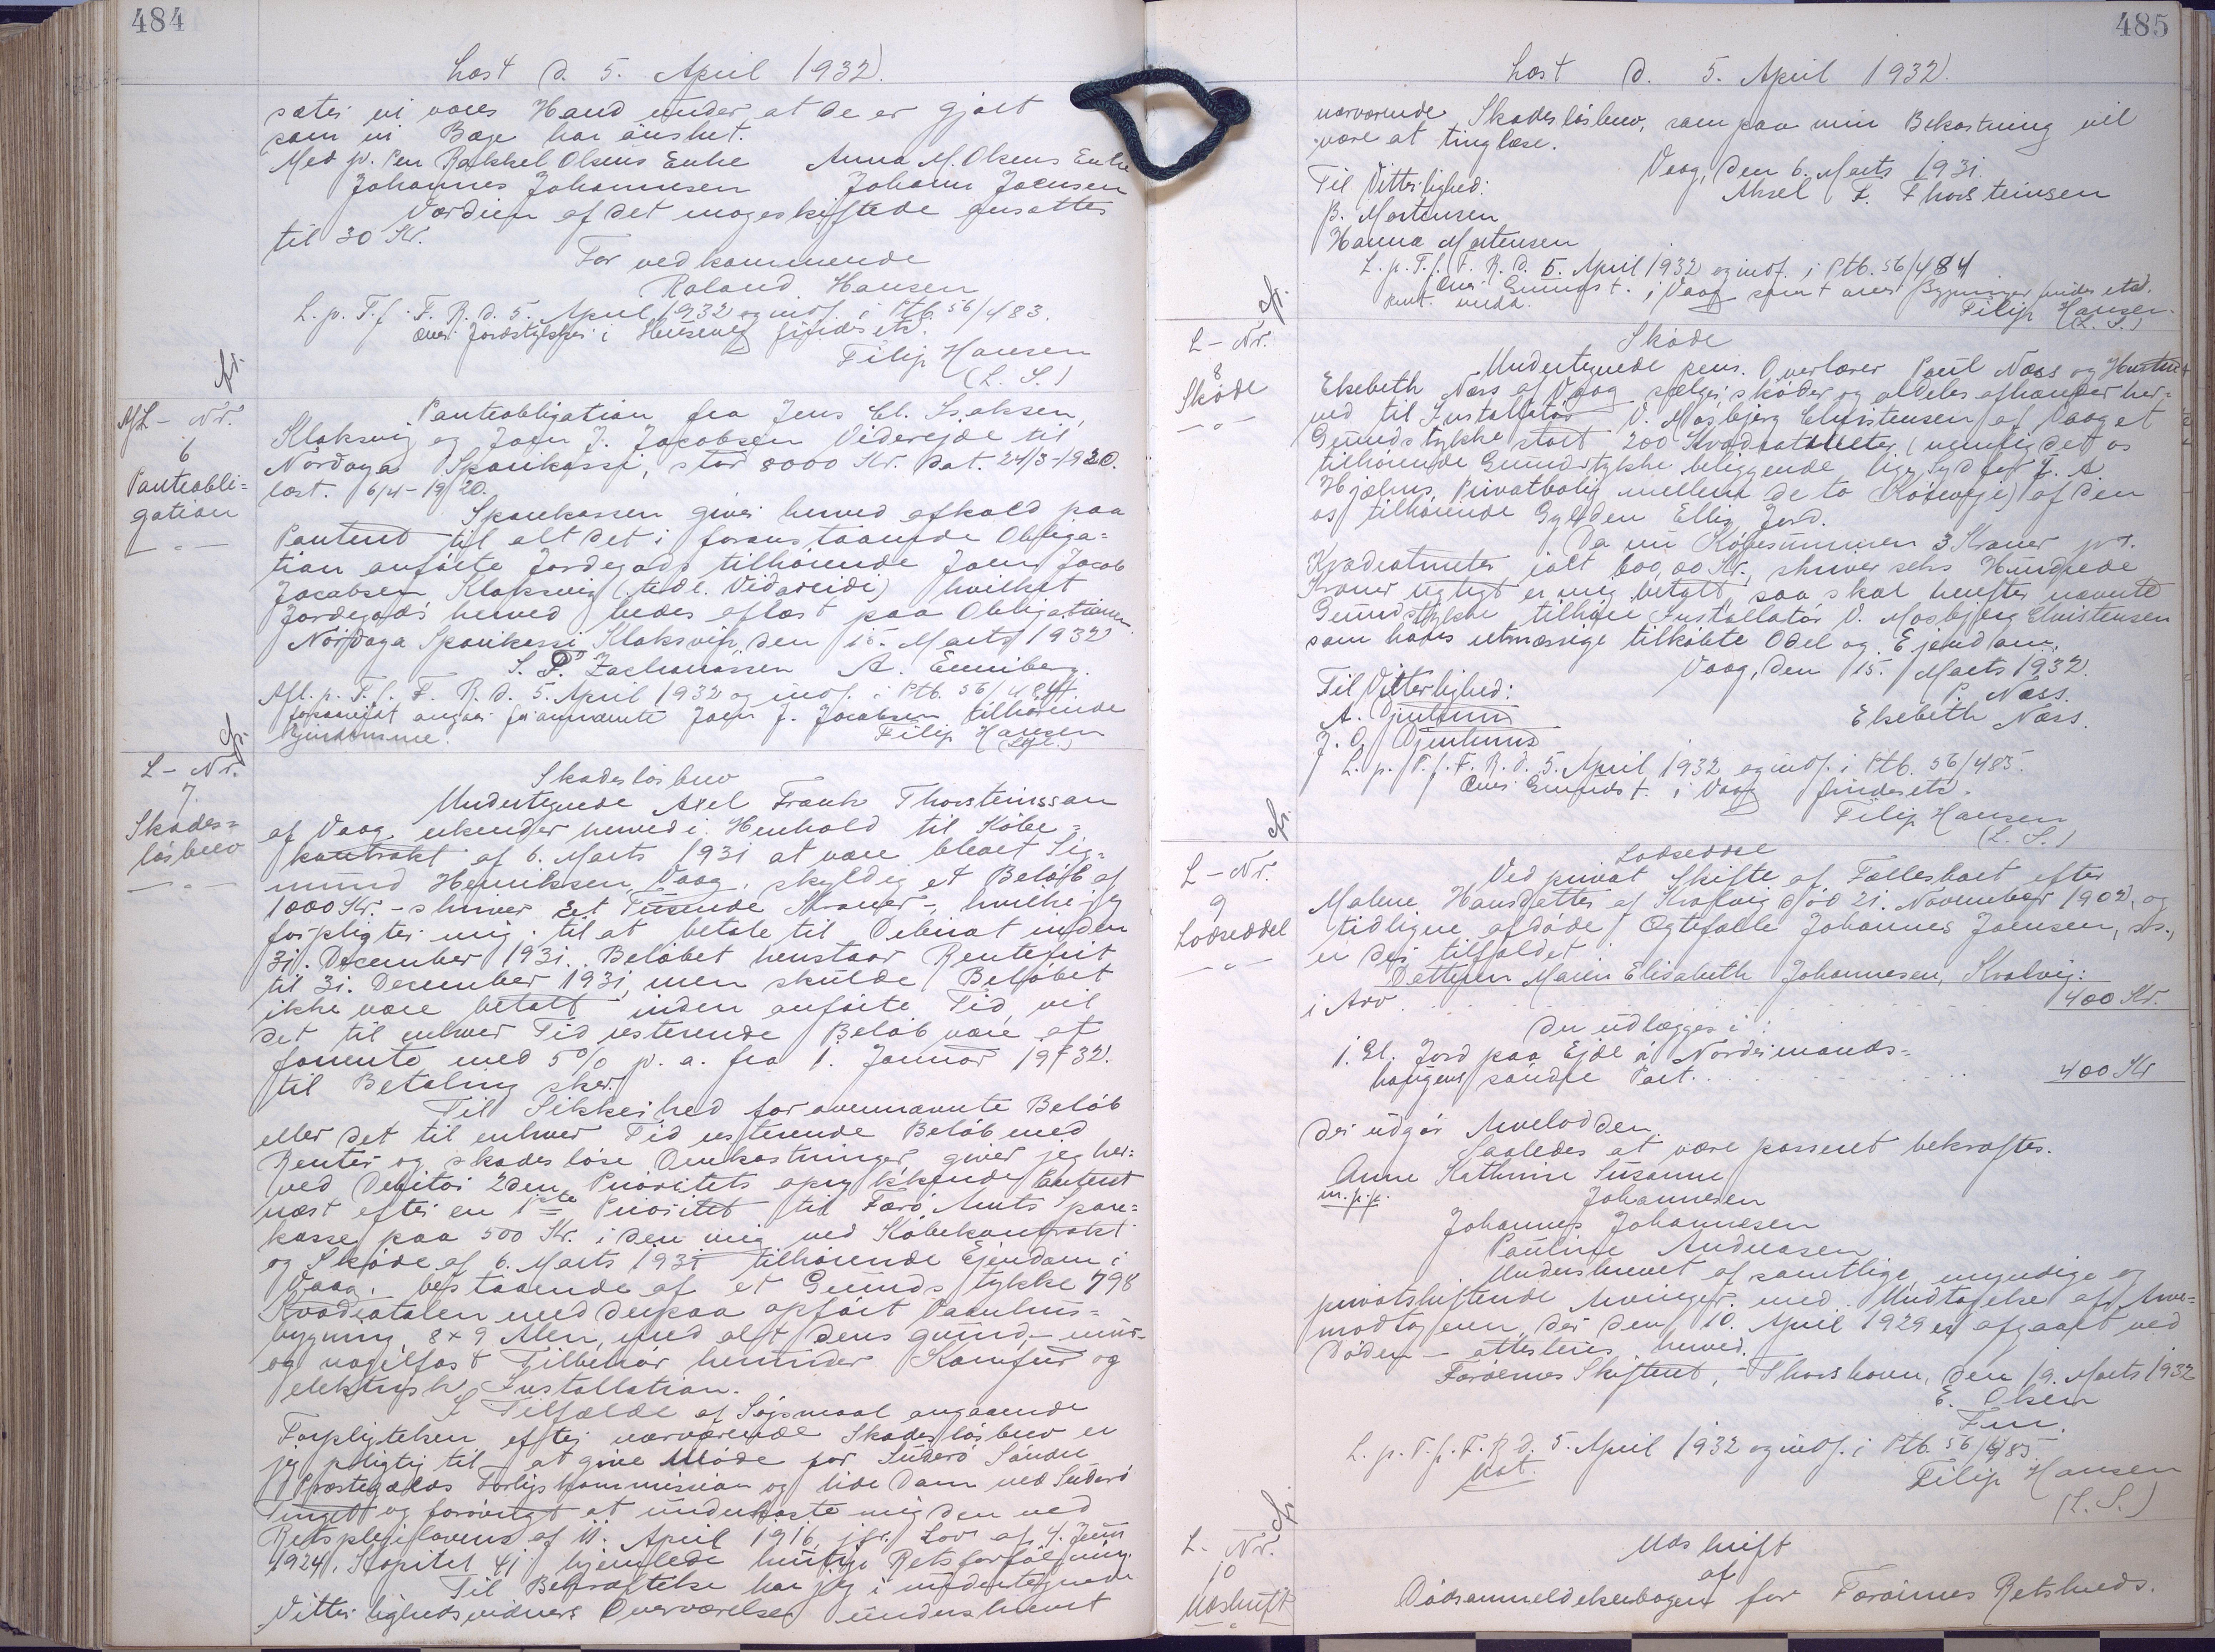 484
Læst d. 5. April 1932.
sætter vi vores Haand under, at de er gjort
som vi Bæge har ønsket.
Med p. Pen Rakkel Olsens Enke Anna M. Olsens Enke
Johannes Johannesen Johann Joensen
Værdien af det mageskiftede ansættes
til 30 Kr.
For vedkommende
Roland Hansen
L. p. T. f. F. R. d. 5. April 1932 og indf. i Ptb. 56/483.
over Jordstykker i findes etd.
Filip Hansen
(L. S.)
Afl - Nr.
6
Panteobli=
gation
Panteobligation fra Jens Cl. Isaksen,
Klaksvig og Joen J. Jacobsen Viderejde til
Nordoya Sparikassi, stor 8000 Kr. dat. 24/3-1920.
læst. 6/4-1920.
Sparekassen giver herved afkald paa
Panteret til alt det i foranstaaende Obliga=
tion anførte Jordegods tilhørende Joen Jacob
Jacobsen Klaksvig (tidl. Vidareidi) hvilket
Jordegods herved bedes aflæst paa Obligationen.
Nordoya Sparikassi Klaksvig, den 15. Marts 1932
S. P. Zachariassen A. Enniberg.
Afl. p. T. f. F. R. d. 5. April 1932 og indf. i Ptb. 56/484.
forsaavidt angaar førnævnte Joen J. Jacobsen tilhørende
Ejendomme. Filip Hansen
L - Nr.
7.
Skades=
løsbrev
Skadesløsbrev
Undertegnede Axel Frank Thorsteinsson
af Vaag, erkender herved i Henhold til Købe=
kontrakt af 6. Marts 1931 at være bleven Sig=
mund Henriksen, Vaag, skyldig et Beløb af
1000 Kr. - skriver Eet Tusende Kroner -, hvilke jeg
forpligter mig til at betale til Debitor inden
31. December 1931. Beløbet henstaar Rentefrit
til 31. December 1931, men skulde Beløbet
ikke være betalt inden anførte Tid, vil
det til enhver Tid resterende Beløb være at
forrente med 5% p. a. fra 1. Januar 1932.
til Betaling sker.
Til Sikkerhed for ovennævnte Beløb
eller det til enhver Tid resterende Beløb med
Renter og skadesløse Omkostninger giver jeg her=
ved Debitor 2den Prioritets oprykkende Panteret
næst efter en 1ste Prioritet til Færø Amts Spare=
kasse paa 500 Kr. i den mig ved Købekontrakt
og Skøde af 6. Marts 1931 tilhørende Ejendom i
Vaag, bestaaende af et Grundstykke 798
Kvadratalen med derpaa opført Vaanhus=
bygning 8 x 9 Alen, med alt dens grund- mur-
og nagelfast Tilbehør herunder Komfur og
elektrisk Installation.
I Tilfælde af Søjsmaal angaaende
Forpligtelsen efter nærværende Skadesløsbrev er
jeg pligtig til at give Møde for Suderø Søndre
Præstegælds Forligskommission og lide Dom ved Suderø
Tinget og forøvrigt at underkaste mig den ved
Retsplejelovens af 11. April 1916, jfr. Lov af 4. Juni
1924, Kapitel 41 hjemlede hurtige Retsforfølgning.
Til Bekræftelse har jeg i undertegnede
Vitterlighedsvidners Overværelse underskrevet
485
Læst d. 5. April 1932.
nærværende Skadesløsbrev, som paa min Bekostning vil
være at tinglæse.
Vaag, den 6. Marts 1931.
Til Vitterlighed: Aksel F. Thorsteinsen
B. Mortensen
Hanna Mortensen
L. p. T. f. F. R. d. 5. April 1932 og indf. i Ptb. 56/484
over Grundst. i Vaag samt over Bygninger findes etd.
Filip Hansen
(L. S.)
L - Nr.
8
Skøde
Skøde
Undertegnede pens. Overlærer Poul Næss og Hustru
Elsebeth Næss af Vaag sælger, skøder og aldeles afhænder her=
ved til Installatør V. Mosbjerg Christensen af Vaag et
Grundstykke stort 200 Kvadratmeter (nemlig det os
tilhørende Grundstykke beliggende lige Syd for J. A.
Hjelms Privatbolig mellem de to Køreveje) af den
os tilhørende Gylden Ellis Jord.
Da nu Købesummen 3 Kroner pr.
Kvadratmeter ialt 600,00 Kr., skriver seks Hundrede
Kroner rigtigt er mig betalt, saa skal herefter nævnte
Grundstykke tilhøre Installatør V. Mosbjerg Christensen
som hans retmæssige tilkøbte Odel og Ejendom.
Vaag, den 15. Marts 1932.
Til Vitterlighed: P. Næss.
A. Djurhuus Elsebeth Næss.
J. O. Djurhuus
L. p. T. f. F. R. d. 5. April 1932 og indf. i Ptb. 56/485.
Over Grundst. i Vaag findes etd.
Filip Hansen
(L. S.)
L - Nr.
9
Lodseddel
Lodseddel
Ved privat Skifte af Fællesboet efter
Malene Hansdatter af Kvalvig død 21. November 1902, og
tidligere afdøde Ægtefælle Johannes Joensen, sst.,
er der tilfaldet:
Datteren Maren Elisabeth Johannesen, Kvalvig:
i Arv . . . 400 Kr.
der udlægges i:
1. Gl. Jord paa Ejde á Nordrimands=
haugens søndre Part. . . . 400 Kr
der udgør Arvelodden.
Saaledes at være passeret bekræftes.
Anne Kathrine Susanne
m.p.p. Johannesen
Johannes Johannesen
Pauline Andreasen
Underskrevet af samtlige, myndige og
privatskiftende Arvinger med Undtagelse af Arve=
modtageren, der den 10. April 1929 er afgaaet ved
Døden - attesteres herved.
Færøernes Skifteret, Thorshavn, den 19. Marts 1932
E. Olsen
Fm.
L. p. T. f. F. R. d. 5. April 1932 og indf. i Ptb. 56/485.
Filip Hansen
(L. S.)
L. Nr.
10
Udskrift
Udskrift
af
Dødsanmeldelsesbogen for Færøernes Retskreds.